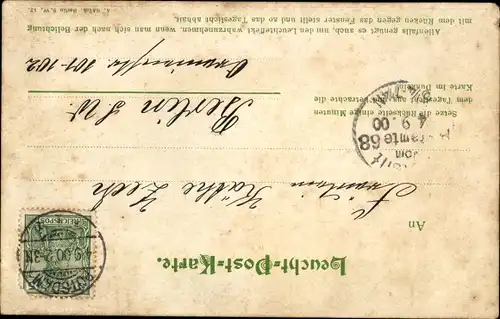 Leucht-Post-Karte.
An
Fräulein Käthe Zech
Berlin S.W.
101-102
Setze die Rückseite einige Minuten
dem Tageslicht aus und betrachte die
Karte im Dunkeln.
Allenfalls es genügt auch, um den Leuchteffekt wahrzunehmen, wenn man sich nach der Belichtung
mit dem Rücken gegen das Fenster stellt und so das Tageslicht abhält.
Berlin S.W. 12.
REICHSPOST
POTSDAM
9.00
68
9.00